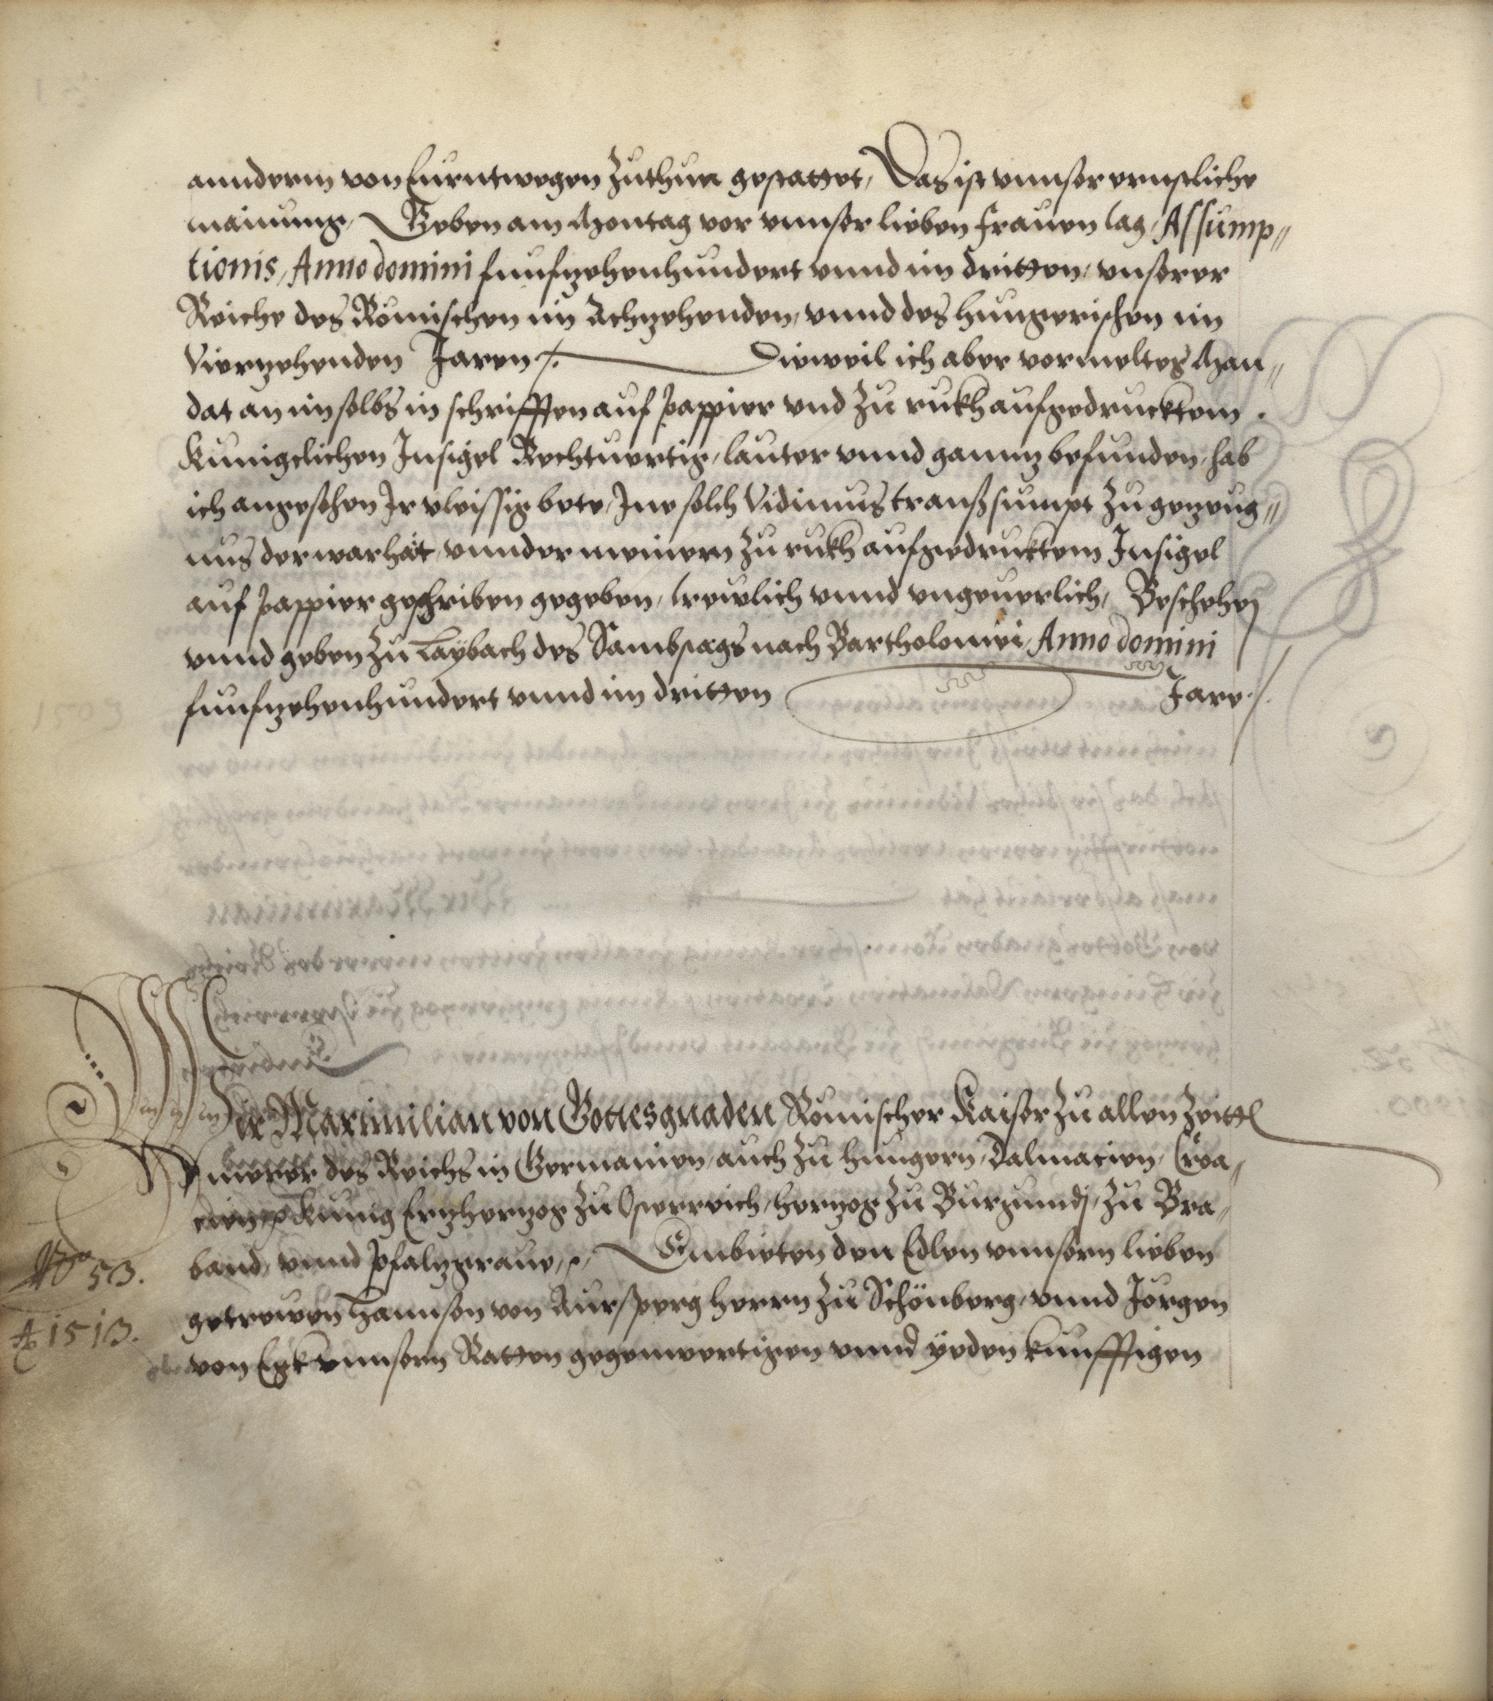 anndern von Eurntwegen zuthun gestattet, Das ist vnnser ernstliche
mainung, Geben am Montag vor vnnser lieben Frauen tag, Assump„
tionis, Anno domini funfzehenhundert vnnd im dritten, vnserer
Reiche des Römischen im Achzehenden, vnnd des hungerischen im
Vierzehenden Jaren ./. Dieweil ich aber vermeltes Man„
dat an im selbs in schrifften auf Pappier vnd zu rukh aufgedrucktem
Kunigclichen Insigel Rechtuertig, lauter vnnd gannz befunden, hab
ich angesehen Ir vleissig bete, Ine solch Vidimus transsumpt zu gezeug„
nus der warhat, vnnder meinem zu rukh aufgedrucktem Insigel
auf Pappier geschriben gegeben, treulich vnnd vngeuerlich, Beschehen
vnnd geben zu Laybach des Sambstags nach Bartholomei, Anno domini
funfzehenhundert vnnd im dritten Jare ./.
Wir Maximilian von Gottes gnaden Römischer Kaiser zu allen Zeitt
merer des Reichs in Germanien, auch zu hungern, Dalmacien, Croa„
cien ꝛc Kunig Erzherzog zu Osterreich, herzog zu Burgundj, zu Bra„
band, vnnd Pfalzgraue, ꝛc, Embieten den Edlen vnnsern lieben
No 53.
getrewen Hannsen von Aursperg herrn zu Schönberg, vnnd Jörgen
Ao 1513.
von Egk vnnsern Ratten gegenwertigen vnnd yeden kunfftigen